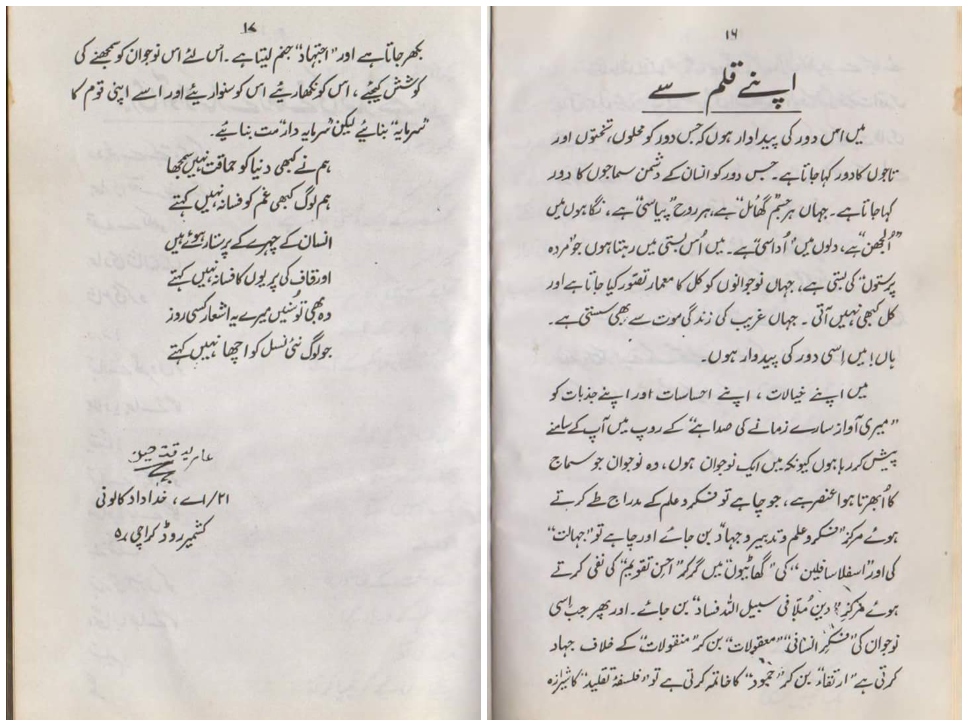 ۱۶
اپنے قلم سے
میں اس دور کی پیداوار ہوں کہ جس دور کو محلوں، تختوں اور
تاجوں کا دور کہا جاتا ہے۔ جس دور کو انسان کے دشمن سماجوں کا دور
کہا جاتا ہے۔ جہاں ہر جسم "گھائل" ہے، ہر روح "پیاسی" ہے، نگاہوں میں
"اُلجھن" ہے، دلوں میں "اُداسی" ہے۔ میں اُس بستی میں رہتا ہوں جو "مردہ
پرستوں" کی بستی ہے، جہاں نوجوانوں کو کل کا معمار تصور کیا جاتا ہے اور
کل کبھی نہیں آتی۔ جہاں غریب کی زندگی موت سے بھی سستی ہے۔
ہاں! میں اِسی دور کی پیدوار ہوں۔
میں اپنے خیالات، اپنے احساسات اور اپنے جذبات کو
"میری آواز سارے زمانے کی صدا بنے" کے روپ میں آپ کے سامنے
پیش کر رہا ہوں کیونکہ میں ایک نوجوان ہوں، وہ نوجوان جو سماج
کا اُبھرتا ہوا عنصر ہے، جو چاہے تو فکر و علم کے مدراج طے کرتے
ہوئے مرکز "فکر و علم و تدبیر و جہاد" بن جائے اور چاہے تو "جہالت"
کی اور "اسفلا سافلین" کی "گھاٹیوں میں گر کر" "احسن تقویم" کی نفی کرتے
ہوئے مرکزِ "دینِ مُلّا فی سبیل اللہ فساد" بن جائے۔ اور پھر جب اِسی
نوجوان کی "فکرِ انسانی" "معقولات" بن کر "منقولات" کے خلاف جہاد
کرتی ہے "ارتقاء" بن کر "جمود" کا خاتمہ کرتی ہے تو "فلسفۂ تقلید" کا شیرازہ
۱۷
بکھر جاتا ہے اور "اجتہاد" جنم لیتا ہے۔ اس لئے اس نوجوان کو سمجھنے کی
کوشش کیجئے، اس کو نکھاریئے اس کو سنواریئے اور اسے اپنی قوم کا
"سرمایہ" بنائیے لیکن "سرمایہ دار" مت بنائیے۔
ہم نے کبھی دنیا کو حماقت نہیں سمجھا
ہم لوگ کبھی غم کو فسانہ نہیں کہتے
انسان کے چہرے کے پرستار ہوئے ہیں
اور قاف کی پریوں کا فسانہ نہیں کہتے
وہ بھی تو سنیں میرے یہ اشعار کسی روز
جو لوگ نئی نسل کو اچھا نہیں کہتے
۲۱/اے، خداداد کالونی
کشمیر روڈ کراچی ۵